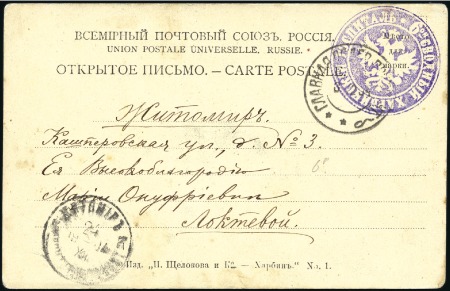 ВСЕМІРНЫЙ ПОЧТОВЫЙ СОЮЗЪ. РОССІЯ.
UNION POSTALE UNIVERSELLE. RUSSIE.
ОТКРЫТОЕ ПИСЬМО. — CARTE POSTALE.
Мѣсто
для
марки.
ГЛАВНАЯ
Житомиръ.
Кашперовская ул., д. № 3.
Ея Высокоблагородію
Маріи Онуфріевнѣ
Локтевой.
ЖИТОМІРЪ
Изд. „П. Щелокова и Ко — Харбинъ." No. 1.